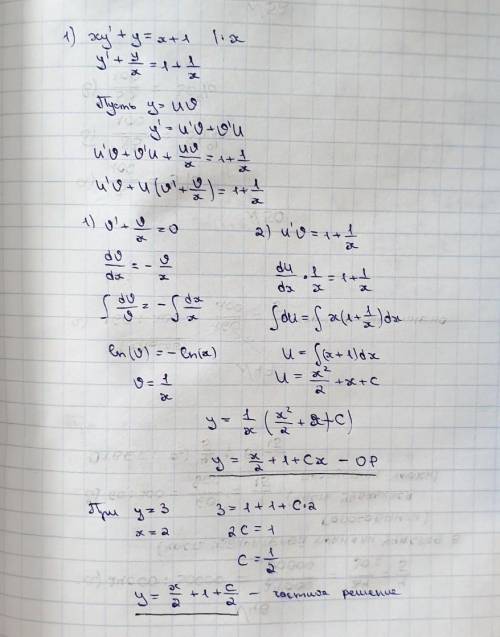 1) xy' + y = x + 1 | : x
y' + y/x = 1 + 1/x
Пусть y = uv
y' = u'v + v'u
u'v + v'u + uv/x = 1 + 1/x
u'v + u(v' + v/x) = 1 + 1/x
1) v' + v/x = 0
dv/dx = - v/x
∫ dv/v = - ∫ dx/x
ln(v) = - ln(x)
v = 1/x
2) u'v = 1 + 1/x
du/dx · 1/x = 1 + 1/x
∫ du = ∫ x(1 + 1/x) dx
u = ∫ (x + 1) dx
u = x²/2 + x + c
y = 1/x (x²/2 + x + C)
y = x/2 + 1 + Cx - ОР
При y = 3
x = 2
3 = 1 + 1 + C·2
2C = 1
C = 1/2
y = x/2 + 1 + C/2 - частное решение